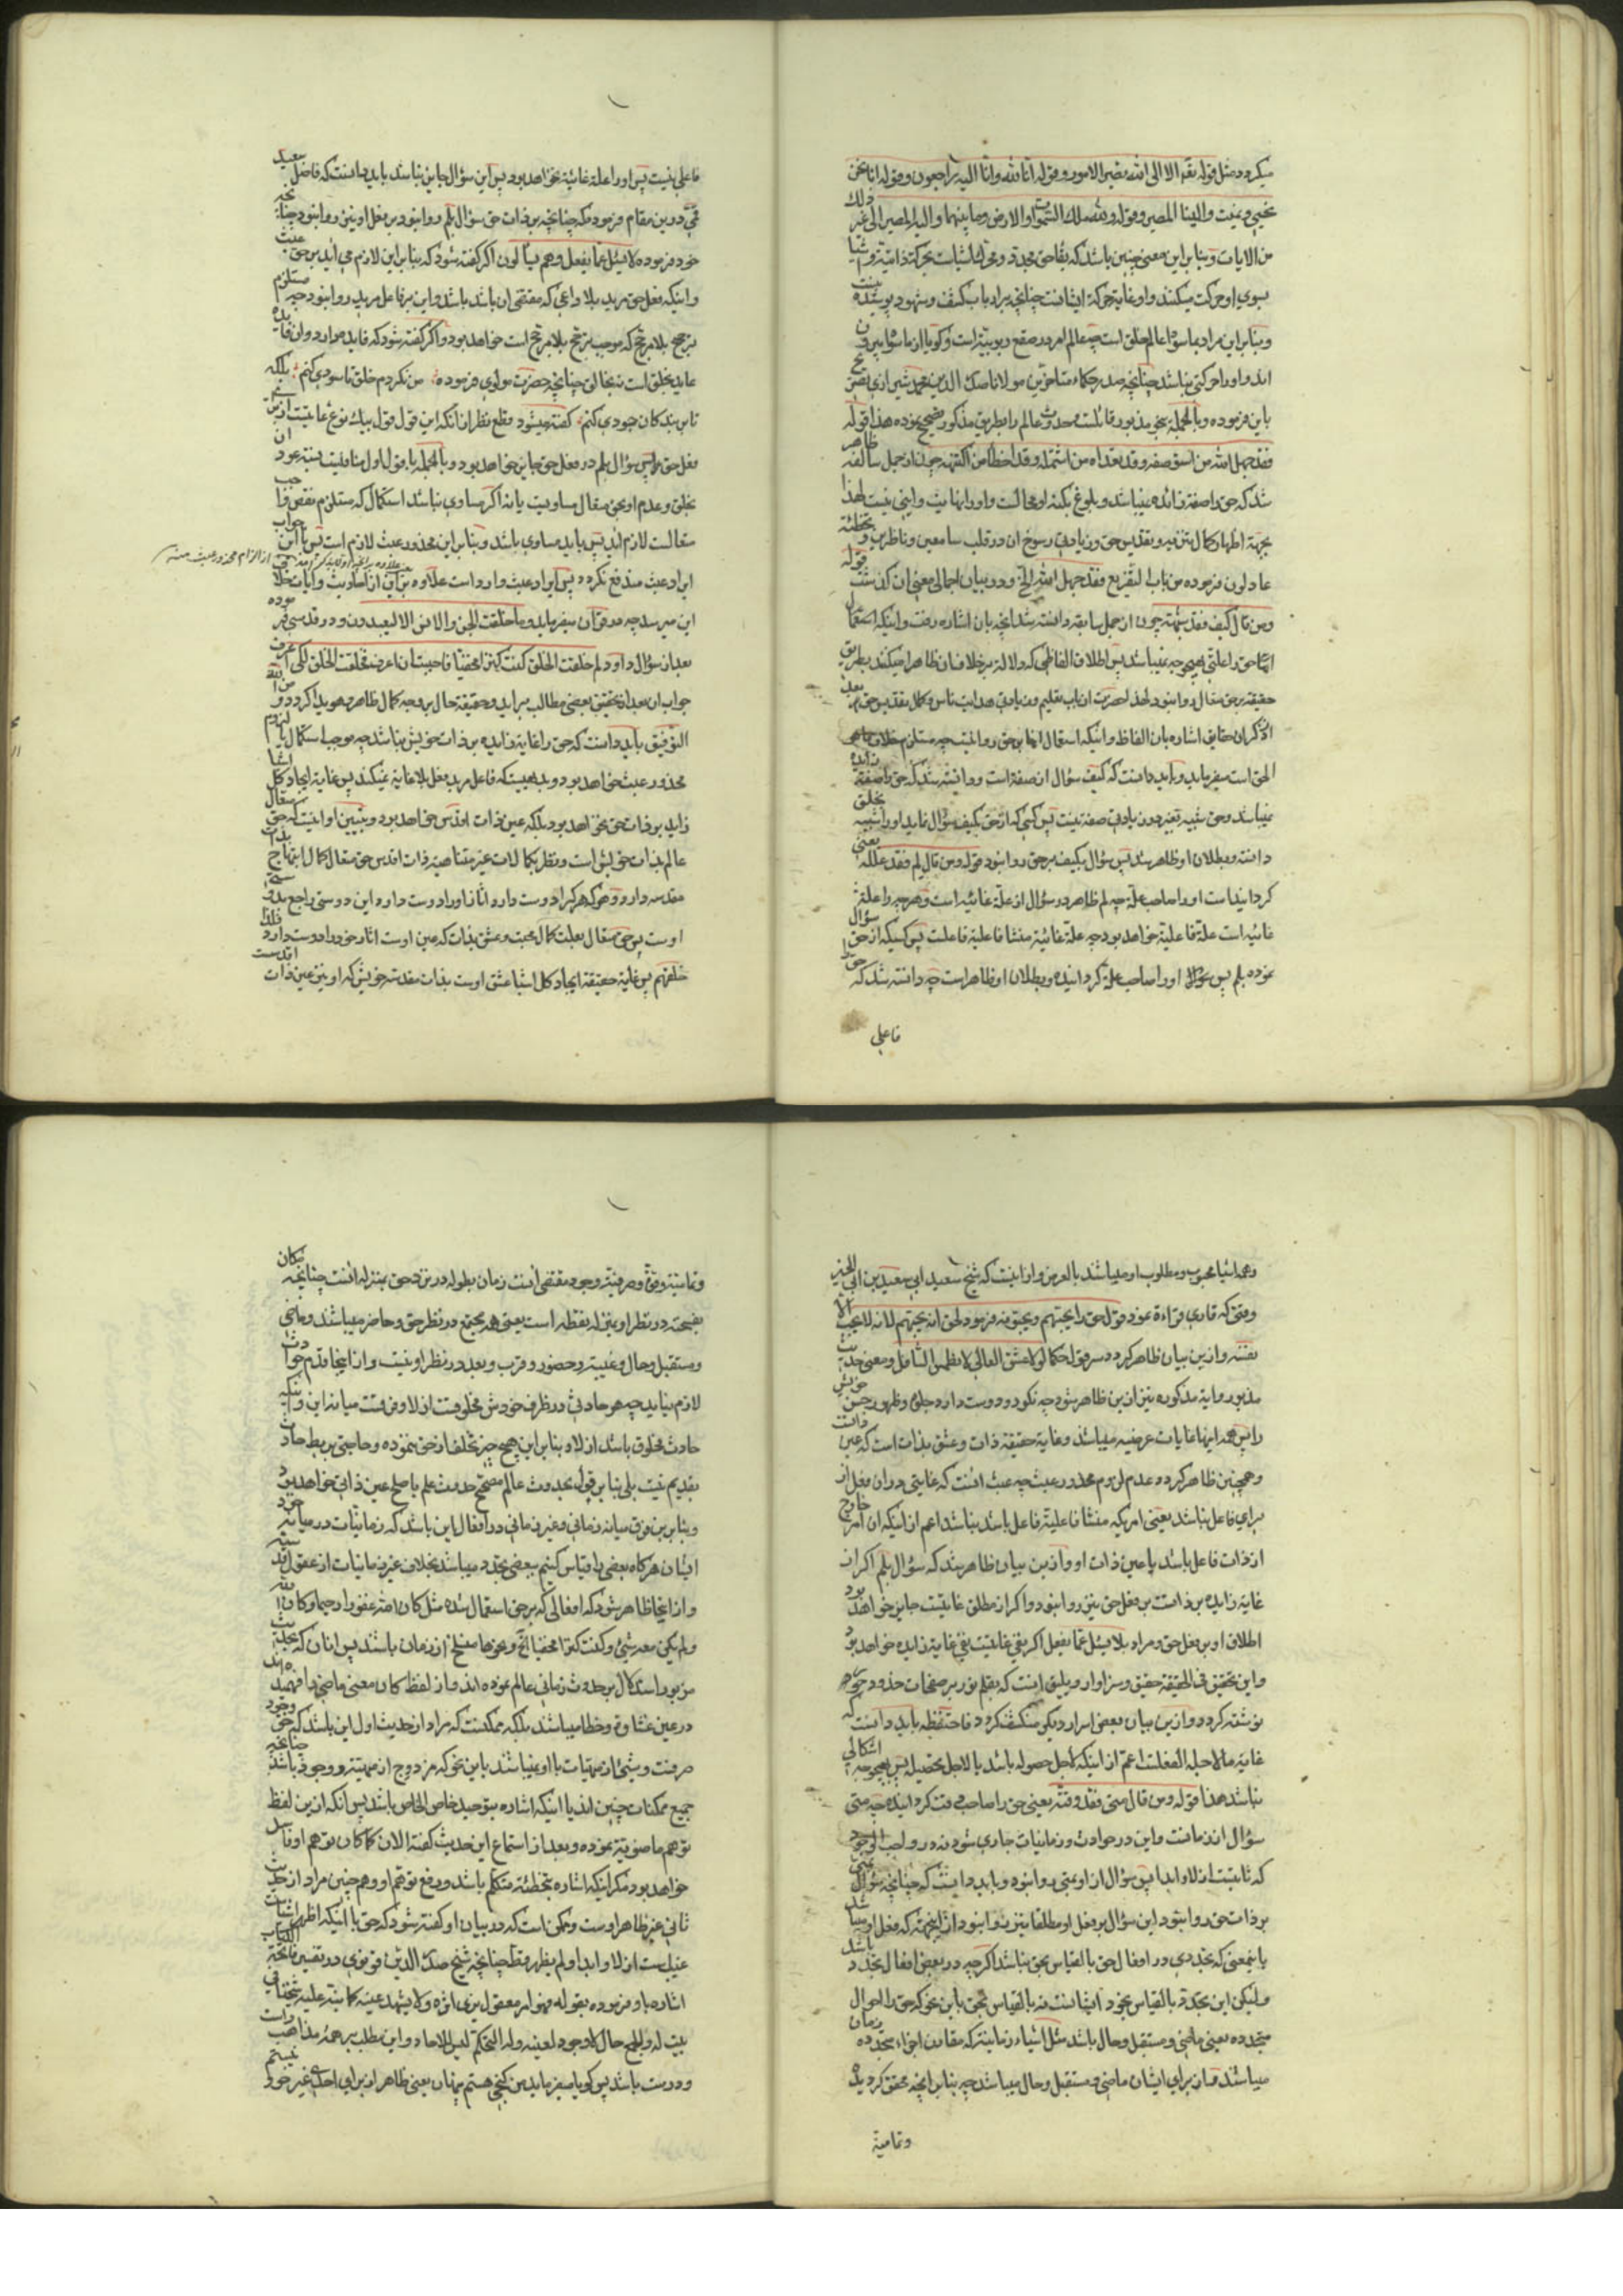 میکردد مثل قوله تقه الا الی الله تصیر الامور و قوله انا لله وانا الیه راجعون و قوله انا نحن
نحیی و نمیت والینا المصیر و قوله ولله ملک السموات والارض وما بینهما والیه المصیر الی غیر ذلک
من الایات و بنابراین معنی چنین باشد که بقا حق مجدد و محرک اشیاست بحرکة ذاتیة و اشیا
بسوی او حرکت میکنند و او غایة حرکة ایشانست چنانچه بر ارباب کشف و شهود پوشیده نیست
و بنابراین مراد بما سواه عالم خلق است چه عالم امر در صقع ربوبیة است و کویا از ما سواه بیرون
اند و او را حرکتی نباشد چنانچه صدر حکماء متاخرین مولانا صدر الدین محمد شیرازی تصریح
باین فرموده و بالجمله بنحو مذبور قائلست و حدوث عالم را بطریق مذکور تصحیح نموده هذا قوله
فقد جهل الله من استوصفه و قد تعداه من اشتمله و قد اخطأ من اکتنهه چون از جمل سالفه ظاهر
شد که حق را صفة زائده نمیباشد و بلوغ بکنه او محالست و او را نهایت و اینی نیست لهذا
بجهة اظهار کمال تنزیه و تقدیس حق و زیادتی رسوخ ان در قلب سامعین و ناظرین و تخطئه
عادلون فرموده من باب التفریع فقد جهل الله الخ و در بیان اجمالی معنی ان کذشت قوله
و من قال کیف فقد شبهه چون از جمل سابقه دانسته شد انچه بان اشاره رفت و اینکه استعمال
حقیقة بر حق متعال روا نبود لهذا حضرت از باب تعلیم و زیادتی هدایت ناس و کمال تقدیس حق بعد
الحق است میفرماید و باید دانست که کیف سؤال از صفة است و دانسته شد که حق را صفة زایده
نمیباشد و حق شبیه بغیر در زیادتی صفة نیست پس کسی که از حق بکیف سؤال نماید او را شبیه بخلق
دانسته و بطلان او ظاهر شد پس سؤال بکیف بر حق روا نبود قوله و من قال لم فقد علله یعنی
کردانیده است او را صاحب علة چه لم ظاهر در سؤال از علة غائیه است و هر چه را علة
غائیه است علة فاعلیة خواهد بود چه علة غائیة منشا فاعلیة فاعلست پس کسیکه از حق سؤال
نموده بلم پس بتحقیق او را صاحب علة کردانیده و بطلان او ظاهر است چه دانسته شد که حق را
فاعلی
فاعلی نیست پس او را علة غائیة نخواهد بود پس این سؤال جایز نباشد باید دانست که فاضل سعید
قمی درین مقام فرموده که چنانچه بر ذات حق سؤال بلم روا نبود بر فعل او نیز روا نبود چنانچه
خود فرموده لا یسئل عما یفعل وهم یسألون اکر کفته شود که بنابر این لازم می اید بر حق عبث
و اینکه فعل حق مرید بلا داعی که مقتضی ان باشد باشد و این بر فاعل مرید روا نبود چه مستلزم
ترجیح بلا مرجح که موجب ترجح بلا مرجح است خواهد بود و اکر کفته شود که فایده دارد و ان فایده
عاید بخلق است نه بخالق چنانچه حضرت مولوی فرموده من نکردم خلق تا سودی کنم بلکه
تا بر بندکان جودی کنم کفته میشود قطع نظر از انکه این قول قول بیک نوع غایتیت است از برای
فعل حق پس سؤال بلم در فعل حق جایز خواهد بود و بالجمله با قول اول منافیست نسبة عود ان
بخلق و عدم او بحق متعال مساویست یا نه اکر مساوی نباشد استکمال که مستلزم نقص واجب
متعالست لازم اید پس باید مساوی باشد و بنابر این محذور عبث لازم است پس با این جواب
ایراد عبث مندفع نکردد پس ایراد عبث وارد است علاوه بر ان از احادیث و ایات خلاف
از الزام محذور عبث منه
این میرسد چه در قران میفرماید وما خلقت الجن والانس الا لیعبدون و در قدسی فرموده
بعد از سؤال داود لم خلقت الخلق کنت کنزا مخفیا فاحببت ان اعرف فخلقت الخلق لکی اعرف
جواب ان بعد از تحقیق بعضی مطالب براید و حقیقة حال بر وجه کمال ظاهر و هویدا کردد و من الله
التوفیق باید دانست که حق را غایة زایده بر ذات خویش نباشد چه موجب استکمال یا لزوم
محذور عبث خواهد بود و بدیهیست که فاعل مرید فعل بلا غایة نمیکند پس غایة ایجاد کل اشیا
زاید بر ذات حق نخواهد بود بلکه عین ذات اقدس خواهد بود و تبیین او اینست که حق متعال
عالم بذات خویش است و نظر بکمالات غیر متناهیه ذات اقدس حق متعال کمال ابتهاج بذات
مقدسه دارد و هر که هر کرا دوست دارد اثار او را دوست دارد این دوستی راجع بدوستی
اوست پس حق متعال بعلت کمال محبت و عشق بذات که عین اوست اثار خود را دوست دارد فلذا
خلقهم پس غایة حقیقة ایجاد کل اشیا عشق اوست بذات مقدسه خویش که او نیز عین ذات اقدست
و همه اشیا محبوب و مطلوب او میباشند بالعرض و ازاینست که شیخ سعید ابی سعید بن ابی الخیر
وقتی که قاری قراءة نمود قول حق را یحبهم و یحبونه فرمود لحق انه یحبهم لانه لا یحب الا
نفسه و ازین بیان ظاهر کردد سر قول حکما لولا عشق العالی لانطمس السافل و معنی حدیث
مذبور روایة مذکوره نیز ازین ظاهر شود چه نکو رو دوست دارد جلوه و ظهور حسن خویش
را پس همه اینها غایات عرضیه میباشند و غایة حقیقة ذات و عشق بذات است که عین ذاتست
و همچنین ظاهر کردد عدم لزوم محذور عبث چه عبث انست که غایتی در ان فعل از
برای فاعل نباشد یعنی امریکه منشا فاعلیة فاعل باشد نباشد اعم از اینکه ان امر خارج
از ذات فاعل باشد یا عین ذات او و ازین بیان ظاهر شد که سؤال بلم اکر از
غایة زایده بر ذاتست بر فعل حق نیز روا نبود و اکر از مطلق غایتیت جایز خواهد بود
اطلاق او بر فعل حق و مراد بلا یسئل عما یفعل اکر نفی غایتیت نفی غایة زایده خواهد بود
و این تحقیق فی الحقیقة حقیق و سزاوار و یلیق اینست که بقلم نور بر صفحات خدود حور
نوشته کردد و ازین بیان بعضی اسرار دیکر منکشف کردد فاحتفظه باید دانست که
غایة ما لاجله الفعلست اعم از اینکه لاجل حصوله باشد یا لاجل تحصیله پس بهیچوجه اشکالی
نباشد هذا قوله و من قال متی فقد وقته یعنی حق را صاحب وقت کردانیده چه متی
سؤال از زمانست و این در حوادث و زمانیات جاری شود نه در واجب الوجود
که ثابتست ازلا و ابدا پس سؤال از او بمتی روا نبود و باید دانست که چنانچه سؤال بمتی
بر ذات حق روا نبود این سؤال بر فعل او مطلقا نیز روا نبود از اینجهة که فعل او میباشد
باینمعنی که تجددی در افعال حق بالقیاس بحق نباشد اکر چه در بعضی افعال تجدد باشد
ولیکن این تجدد بالقیاس بخود ایشانست نه بالقیاس بحق باین نحو که حق را احوال
متجدده یعنی ماضی و مستقبل و حال باشد مثل اشیاء زمانیة که مقارن اجزاء متجدده زمان
میباشند و از برای ایشان ماضی و مستقبل و حال میباشد چه بنابر انچه محقق کردیده
وتمامیة
وتمامیة وقت و صرفیة وجود مقتضی انست زمان بطوله در نزد حق بمنزله انست چنانچه مکان
بفسحته در نظر او بمنزله نقطه است یعنی همه مجتمع در نظر حق و حاضر میباشند و ماضی
و مستقبل و حال و غیبة و حضور و قرب و بعد در نظر او نیست و از اینجا قدم حوادث
لازم نیاید چه هر حادثی در ظرف خودش مخلوقست ازلا و فرقست میانه این و اینکه
حادث مخلوق باشد ازلا و بنابر این هیچ چیز تخلف از حق ننموده و حاجتی بربط حادث
بقدیم نیست بلی بنابر قول بحدوث عالم مصحح حدوث علم باصلح عین ذاتی خواهد بود
و بنابرین فرق میانه زمانی و غیر زمانی در افعال این باشد که زمانیات در میانه خود
ایشان هرکاه بعضی را قیاس کنیم ببعضی تجدد میباشد بخلاف غیر زمانیات از عقول قدسیه
و از اینجا ظاهر شود که افعالی که بر حق استعمال شده مثل کان الله غفورا رحیما و کان الله
ولم یکن معه شیء و کنت کنزا مخفیا الخ و نحوها منسلخ از زمان باشند پس انان که بحدیث
مزبور استدلال بر حدوث زمانی عالم نموده اند و از لفظ کان معنی ماضی را فهمیده اند
در عین غشاوة و خطا میباشند بلکه ممکنست که مراد از حدیث اول این باشد که حق وجود
صرفست و شیء از مهیات با او نمیباشند باین نحو که مزدوج از مهیة و وجود باشد چنانچه
جمیع ممکنات چنین اند یا اینکه اشاره بتوحید خاص الخاص باشد پس انکه ازین لفظ
توهم ماضویة نموده و بعد از استماع این حدیث کفته الان کما کان توهم او فاسد
خواهد بود مکر اینکه اشاره بتخطئه متکلم باشد و رفع توهم او و همچنین مراد از حدیث
ثانی غیر ظاهر اوست و ممکن است که در بیان او کفته شود که حق با اینکه اظهر اشیاست
غیبست ازلا و ابدا و لم یظهر قط چنانچه شیخ صدر الدین قونوی در تفسیر فاتحة الکتاب
اشاره باو فرموده بقوله فهو امر معقول یری اثره ولا یشهد عینه کما نبه علیه شیخنا فی
بیت له والجمع حال لا وجود لعینه وله التحکم لیس للاحاد و این مطلب بر همه مذاهب
و درست باشد پس کویا میفرماید من کنجی هستم پنهان یعنی ظاهر از برای احدی غیر خود نیستم